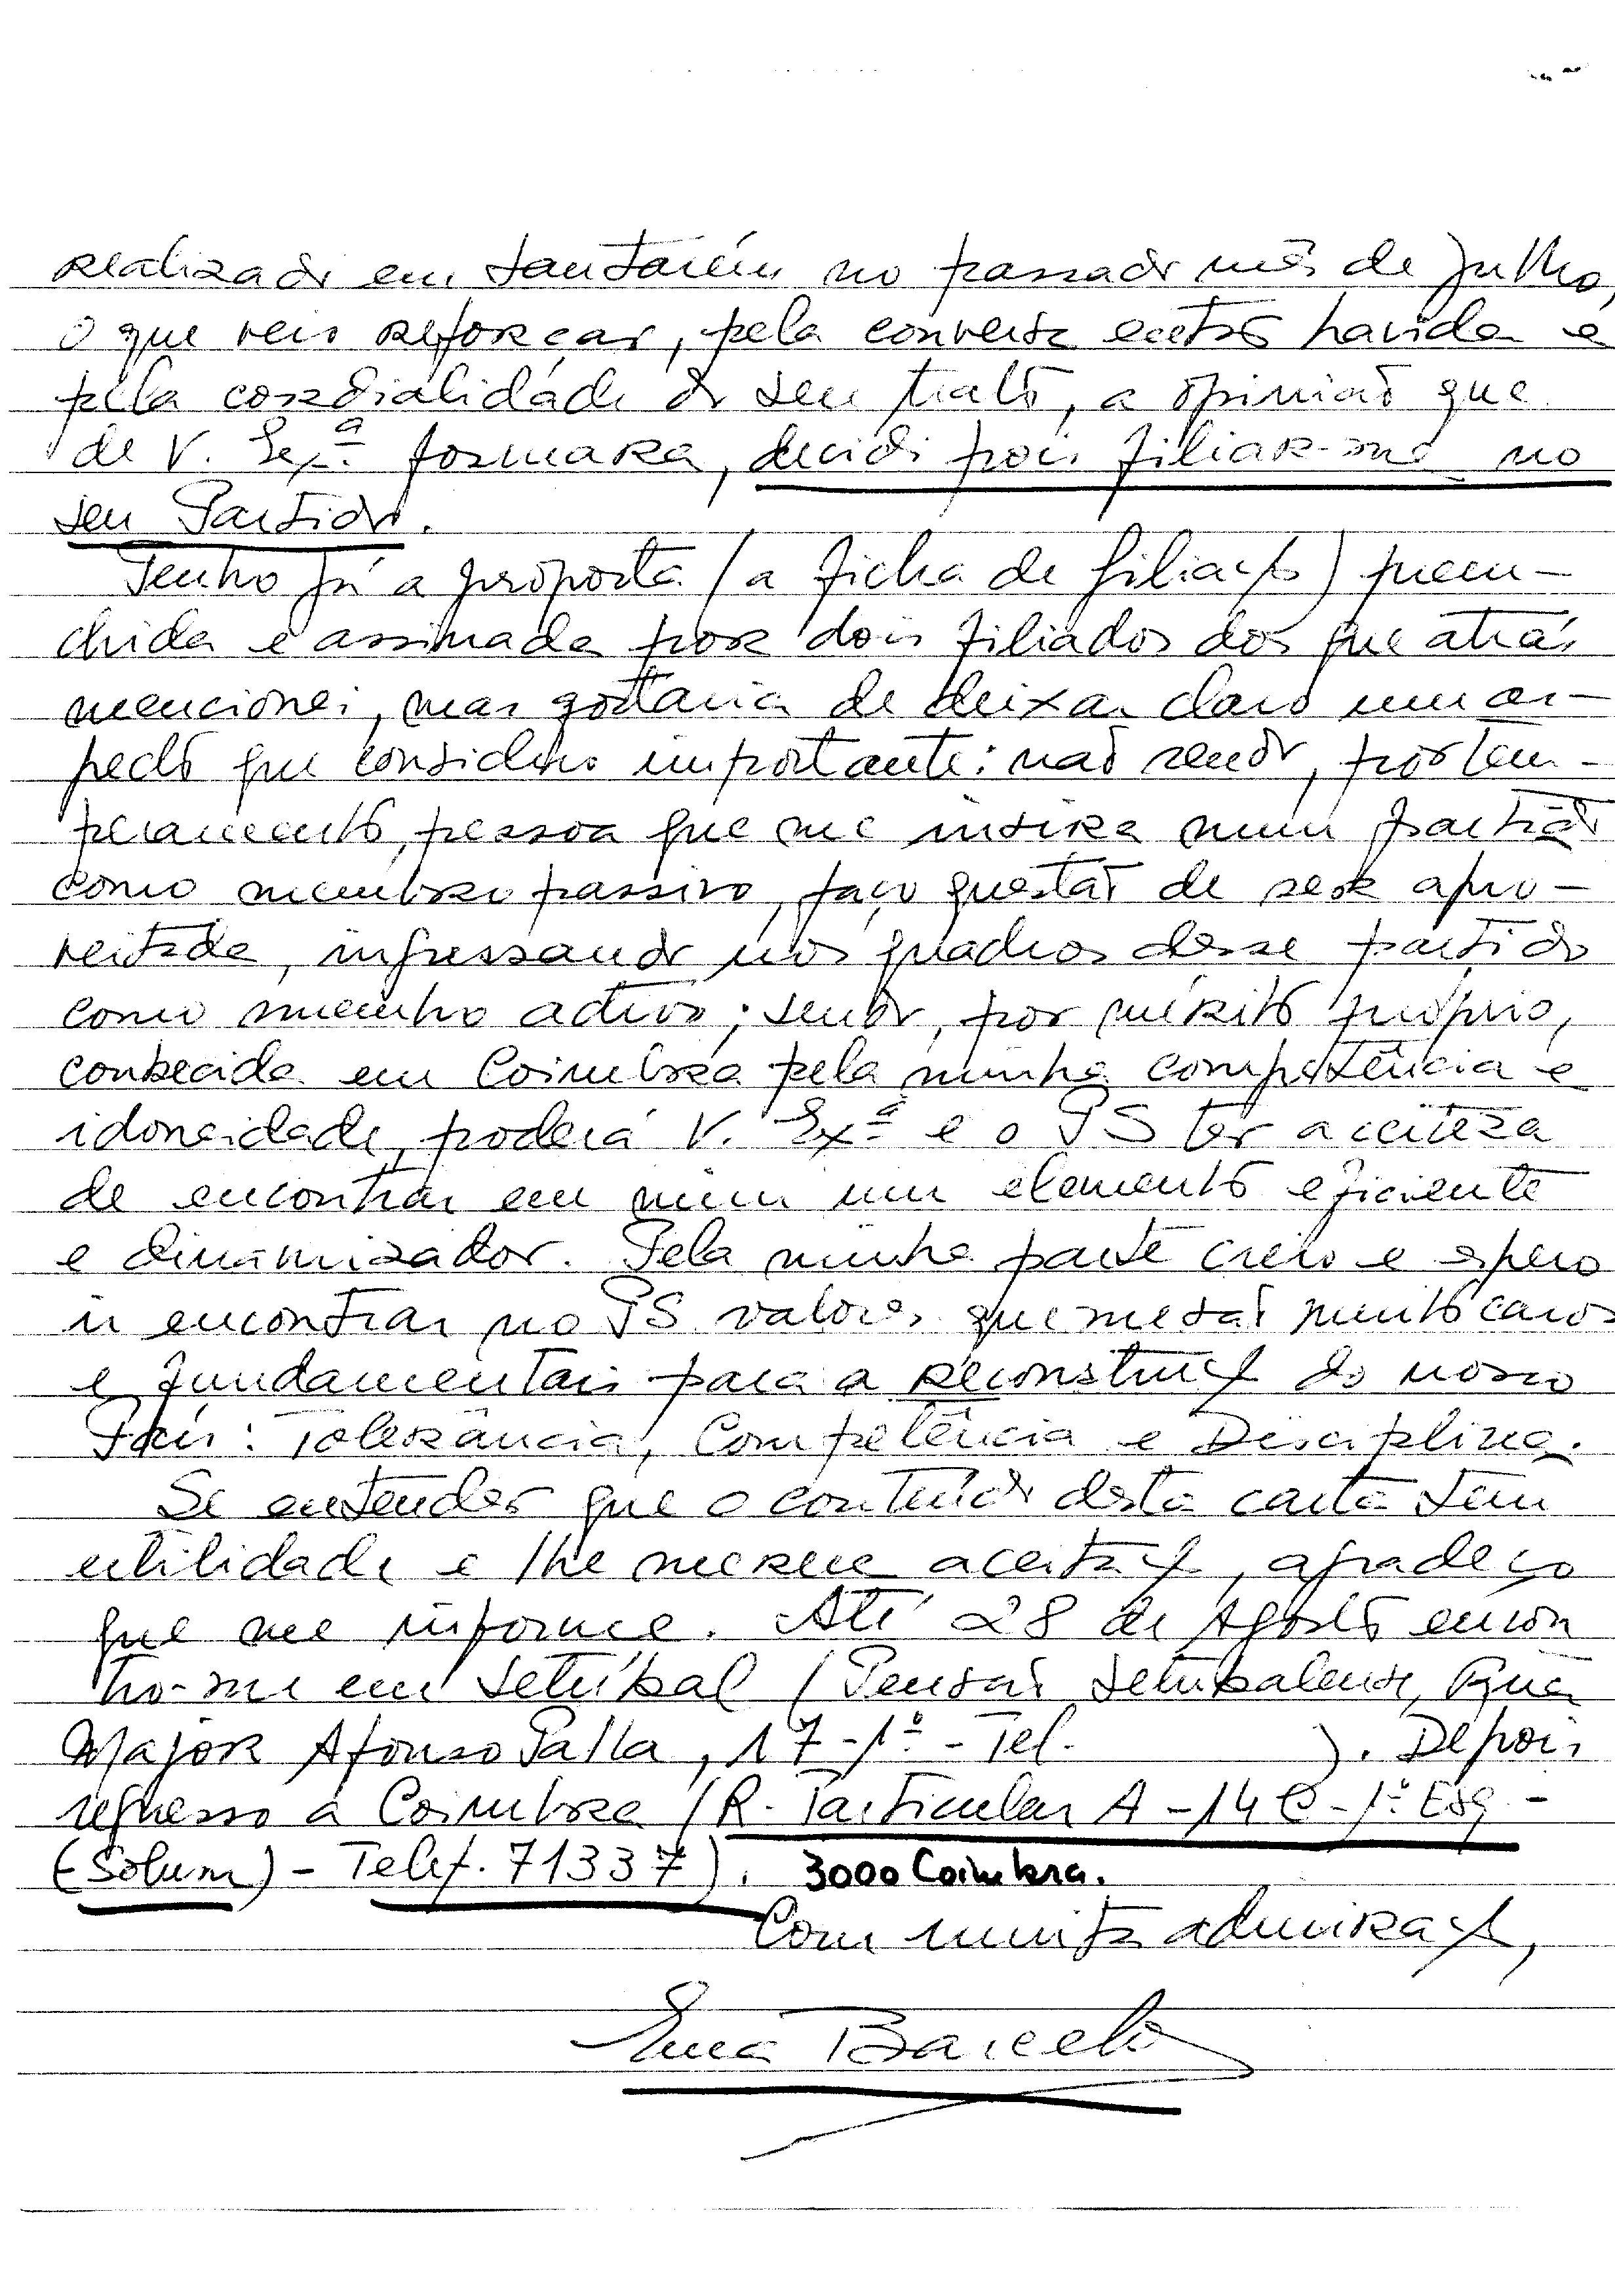 realizado em Santarém no passado mês de Julho,
o que veio reforçar, pela conversa então havida e
pela cordialidade do seu trato, a opinião que
de V. Exª. formara, decidi pois filiar-me no
seu Partido.
Tenho já a proposta (a ficha de filiação) preen-
chida e assinada por dois filiados dos que atrás
mencionei, mas gostaria de deixar claro um as-
pecto que considero importante: não sendo, por tem-
peramento, pessoa que me insira num partido
como membro passivo, faço questão de ser apro-
veitada, ingressando nos quadros desse partido
como membro activo; sendo, por mérito próprio,
conhecida em Coimbra pela minha competência e
idoneidade, poderá V. Exª e o PS ter a certeza
de encontrar em mim um elemento eficiente
e dinamizador. Pela minha parte creio e espero
ir encontrar no PS valores que me são muito caros
e fundamentais para a reconstrução do nosso
País: Tolerância, Competência e Disciplina.
Se entender que o conteúdo desta carta tem
utilidade e lhe merece aceitação, agradeço
que me informe. Até 28 de Agosto encon
tro-me em Setúbal (Pensão Setubalense, Rua
Major Afonso Palla, 17-1º - Tel. ). Depois
regresso a Coimbra (R. Particular A - 14 C - 1º Esq -
(Solum) - Telef. 71337). 3000 Coimbra.
Com muita admiração,
Ema Barcelo